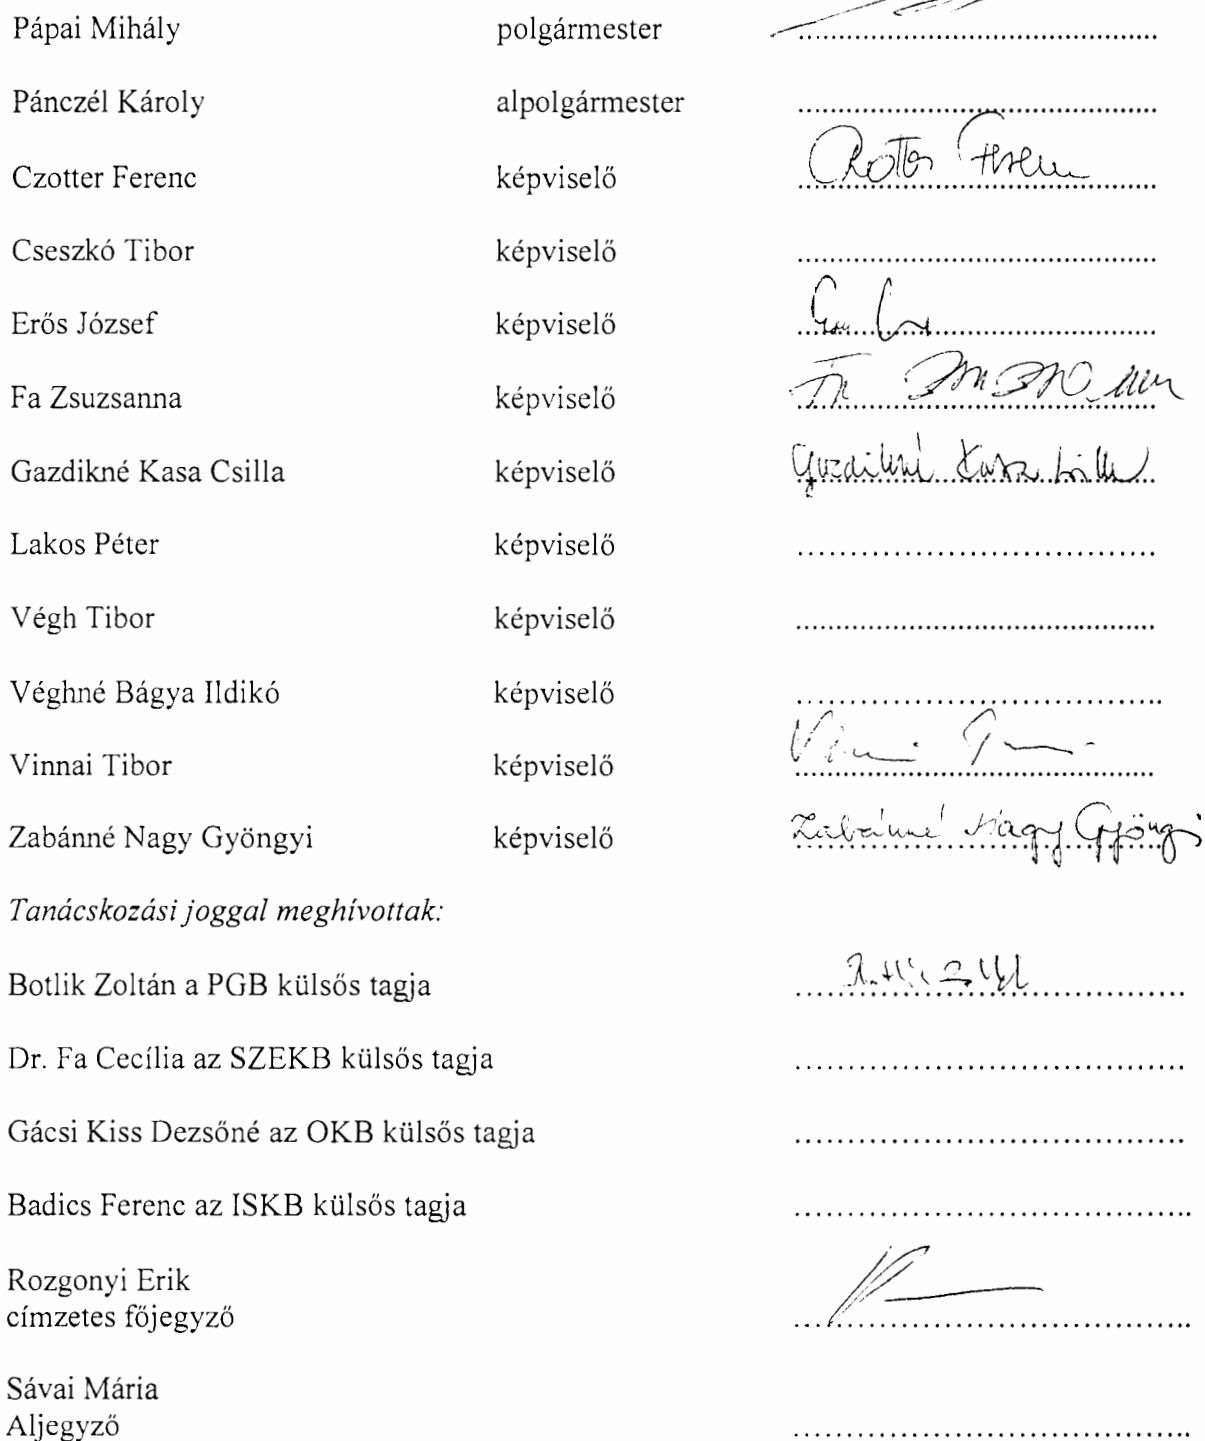 Pápai Mihály polgármester ....................
Pánczél Károly alpolgármester ....................
Czotter Ferenc képviselő Czotter Ferenc
Cseszkó Tibor képviselő ....................
Erős József képviselő ....................
Fa Zsuzsanna képviselő Fa Zsuzsanna
Gazdikné Kasa Csilla képviselő Gazdikné Kasa Csilla
Lakos Péter képviselő ....................
Végh Tibor képviselő ....................
Véghné Bágya Ildikó képviselő ....................
Vinnai Tibor képviselő ....................
Zabánné Nagy Gyöngyi képviselő Zabánné Nagy Gyöngyi
Tanácskozási joggal meghívottak:
Botlik Zoltán a PGB külsős tagja ....................
Dr. Fa Cecília az SZEKB külsős tagja ....................
Gácsi Kiss Dezsőné az OKB külsős tagja ....................
Badics Ferenc az ISKB külsős tagja ....................
Rozgonyi Erik
címzetes főjegyző ....................
Sávai Mária
Aljegyző ....................